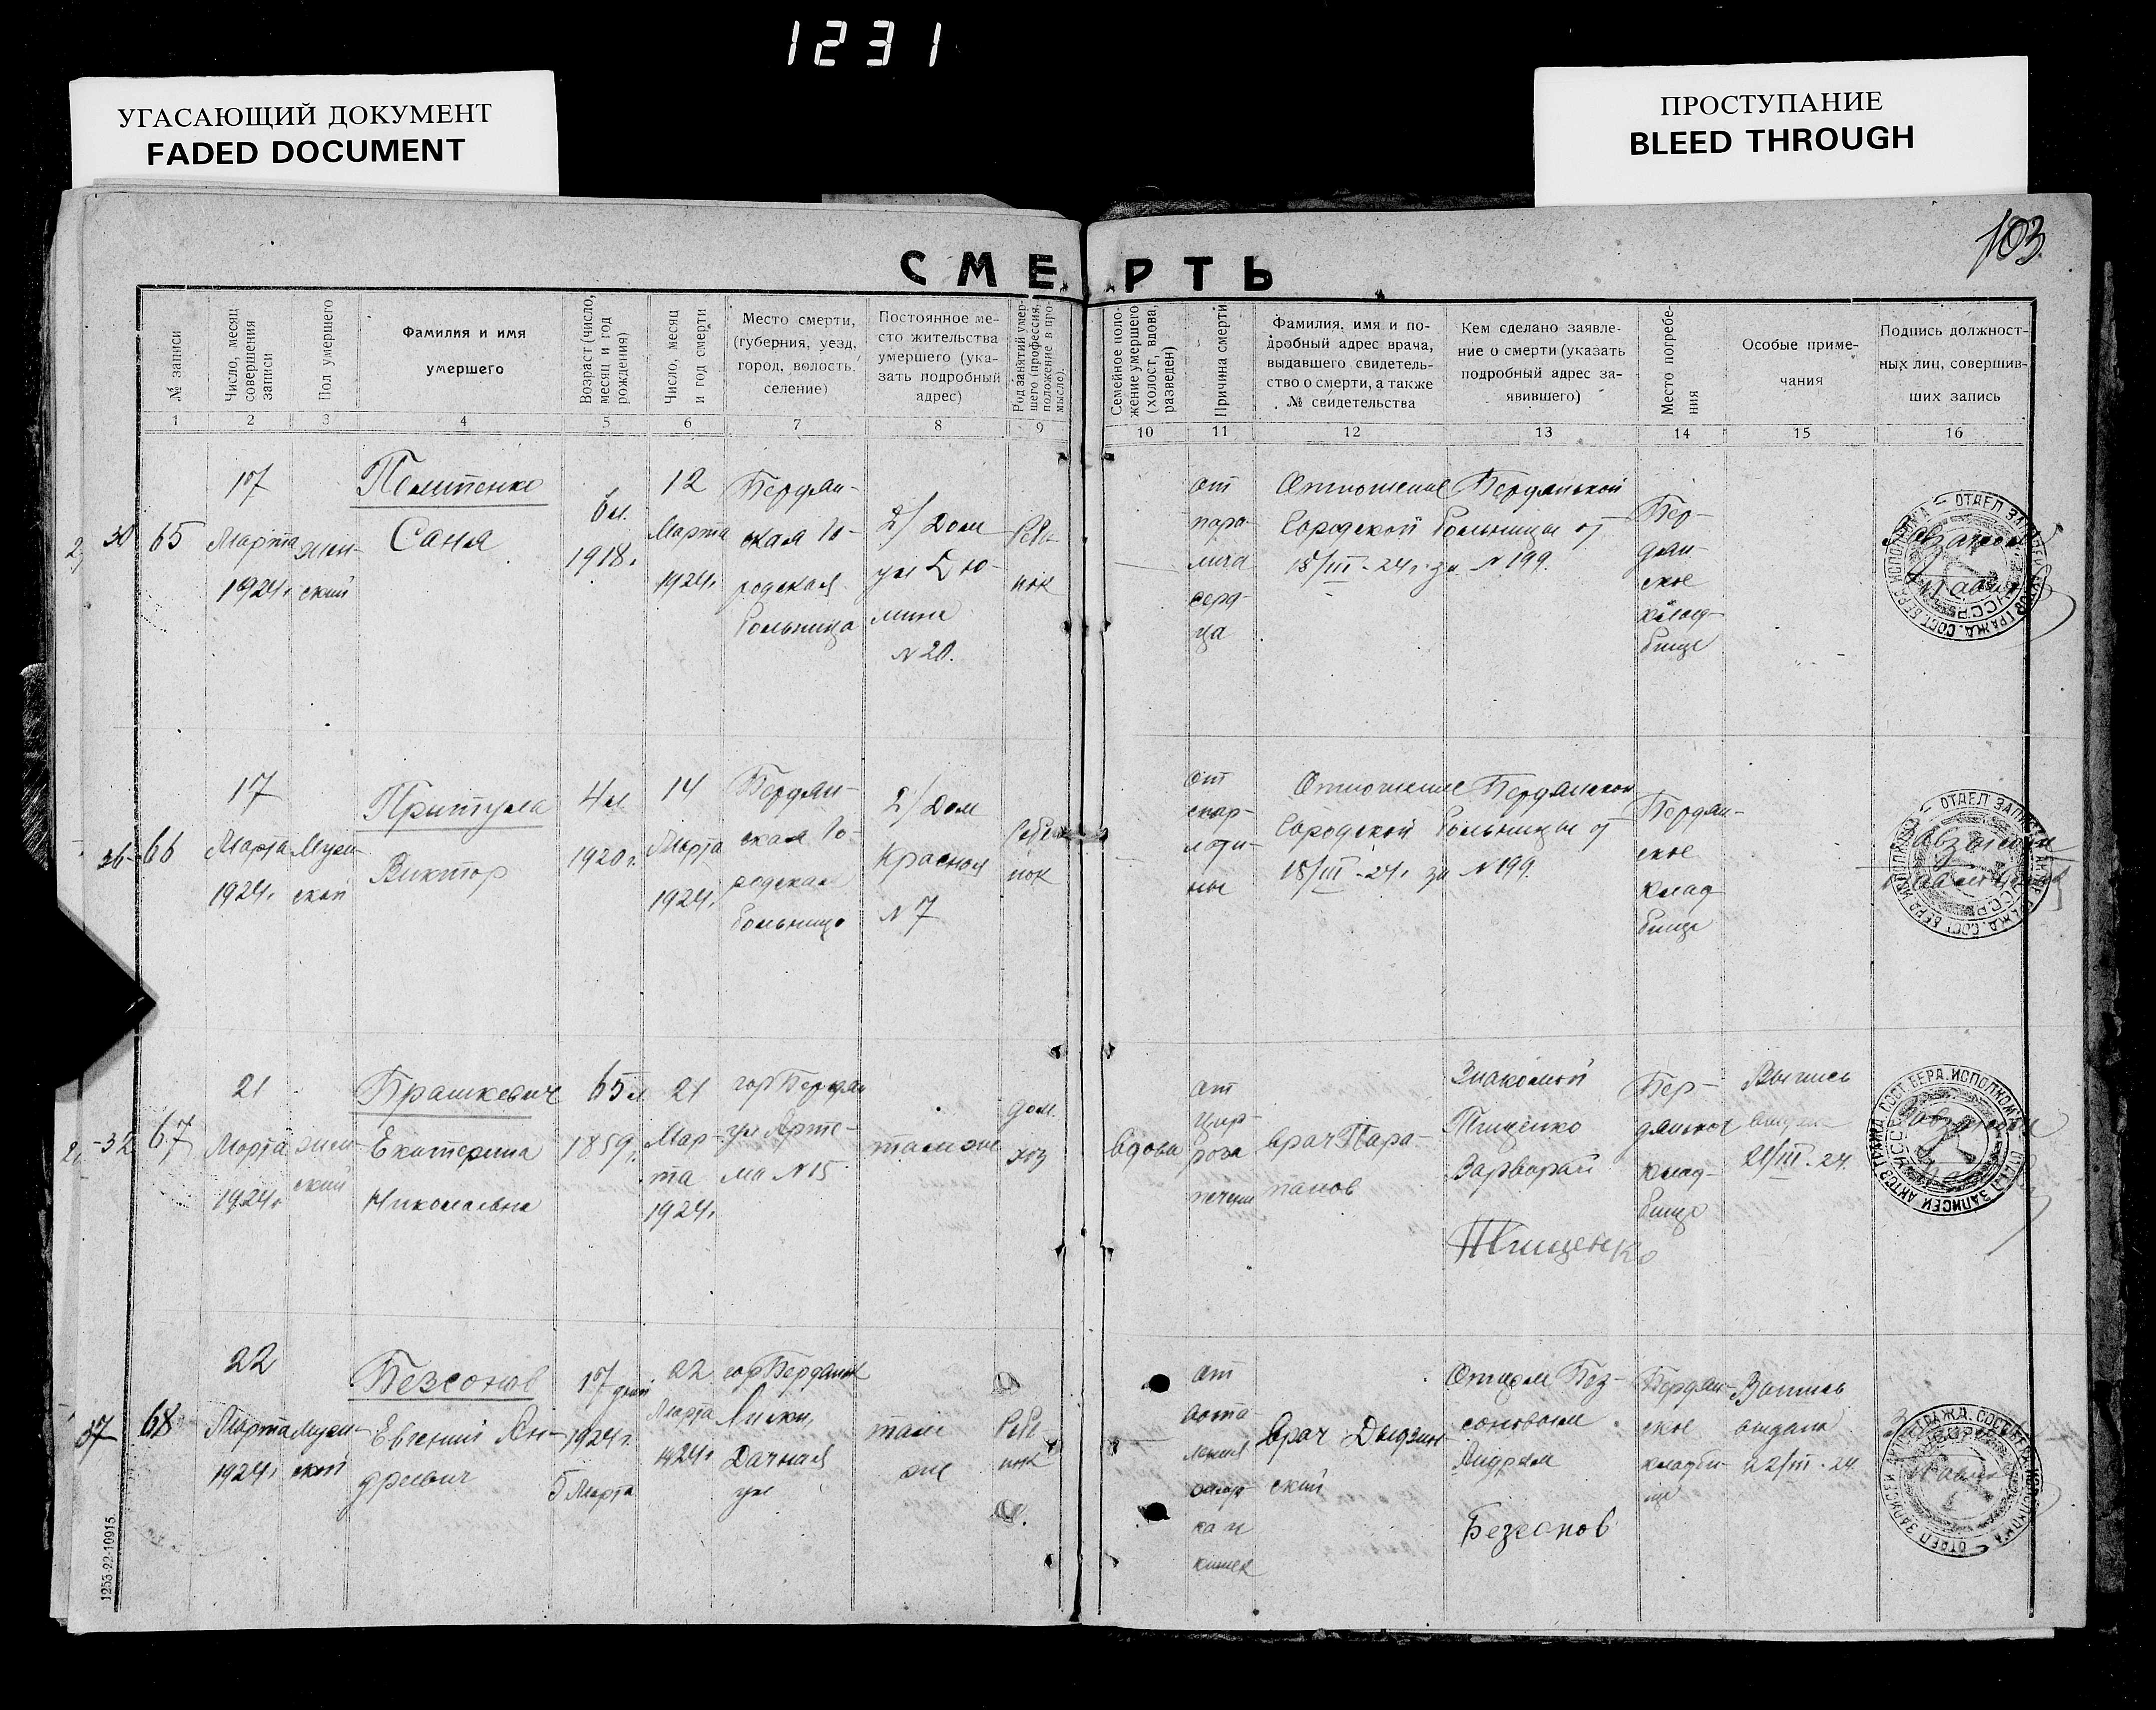 1231
УГАСАЮЩИЙ ДОКУМЕНТ
FADED DOCUMENT
ПРОСТУПАНИЕ
BLEED THROUGH
103
СМЕРТЬ
№ записи
Число, месяц совершения записи
Пол умершего
Фамилия и имя
умершего
Возраст (число, месяц и год рождения)
Число, месяц и год смерти
Место смерти,
(губерния, уезд,
город, волость,
селение)
Постоянное ме-
сто жительства
умершего (ука-
зать подробный
адрес)
Род занятий умер-
шего (профессия,
положение в про-
мысле).
Семейное поло-
жение умершего
(холост, вдова,
разведен)
Причина смерти
Фамилия, имя и по-
дробный адрес врача,
выдавшего свидетель-
ство о смерти, а также
№ свидетельства
Кем сделано заявле-
ние о смерти (указать
подробный адрес за-
явившего)
Место погребе-
ния
Особые приме-
чания
Подпись должност-
ных лиц, совершив-
ших запись
1 2 3 4 5 6 7 8 9 10 11 12 13 14 15 16
30
65
17
Марта
1924г
жен-
ский
Саня
6л.
1918г.
12
Марта
1924г.
Бердян-
ская го-
родская
больница
Д/ Дом
ул
N 20.
Ребе-
нок
от
пара-
лича
серд-
ца
Отношение Бердянской
Городской больницы от
18/III-24г. за N 199.
Бер-
дян-
ское
клад-
бище
66
17
Марта
1924г.
Муж-
ской
Притула
Виктор
4л
1920г.
14
Марта
1924г.
Бердян-
ская го-
родская
больница
Д/ Дом
Красная
N 7
Ребе-
нок
от
скар-
лати-
ны
Отношение Бердянской
Городской больницы от
18/III-24г за N 199.
Бердян-
ское
клад
бище
32
67
21
Марта
1924г
жен-
ский
Брашкевич
Екатерина
Николаевна
65л
1859г.
21
Мар-
та
1924г.
гор Бердян
ул Арте-
ма N 15
там же
дом.
хоз
вдова
от
цир-
роза
печени
врач Пара-
панов
Знакомой
Тищенко
Варварой
Тищенко
Бер-
дянское
клад-
бище
Выпись
выдан
21/III-24.
37
68
22
Марта
1924г.
муж-
ской
Безсонов
Евгений Ан-
дреевич
17 дней
1924г.
5 Марта
22
Марта
1924г
гор Бердянск
Лиски,
Дачная
ул
там
же
Ребе
нок
от
воспа-
ления
врач
ский
Отцом Без-
соновым
Андреем
Безсонов
Бердян-
ское
кладби-
ще
Выпись
выдана
22/III-24
1253-22-10915.